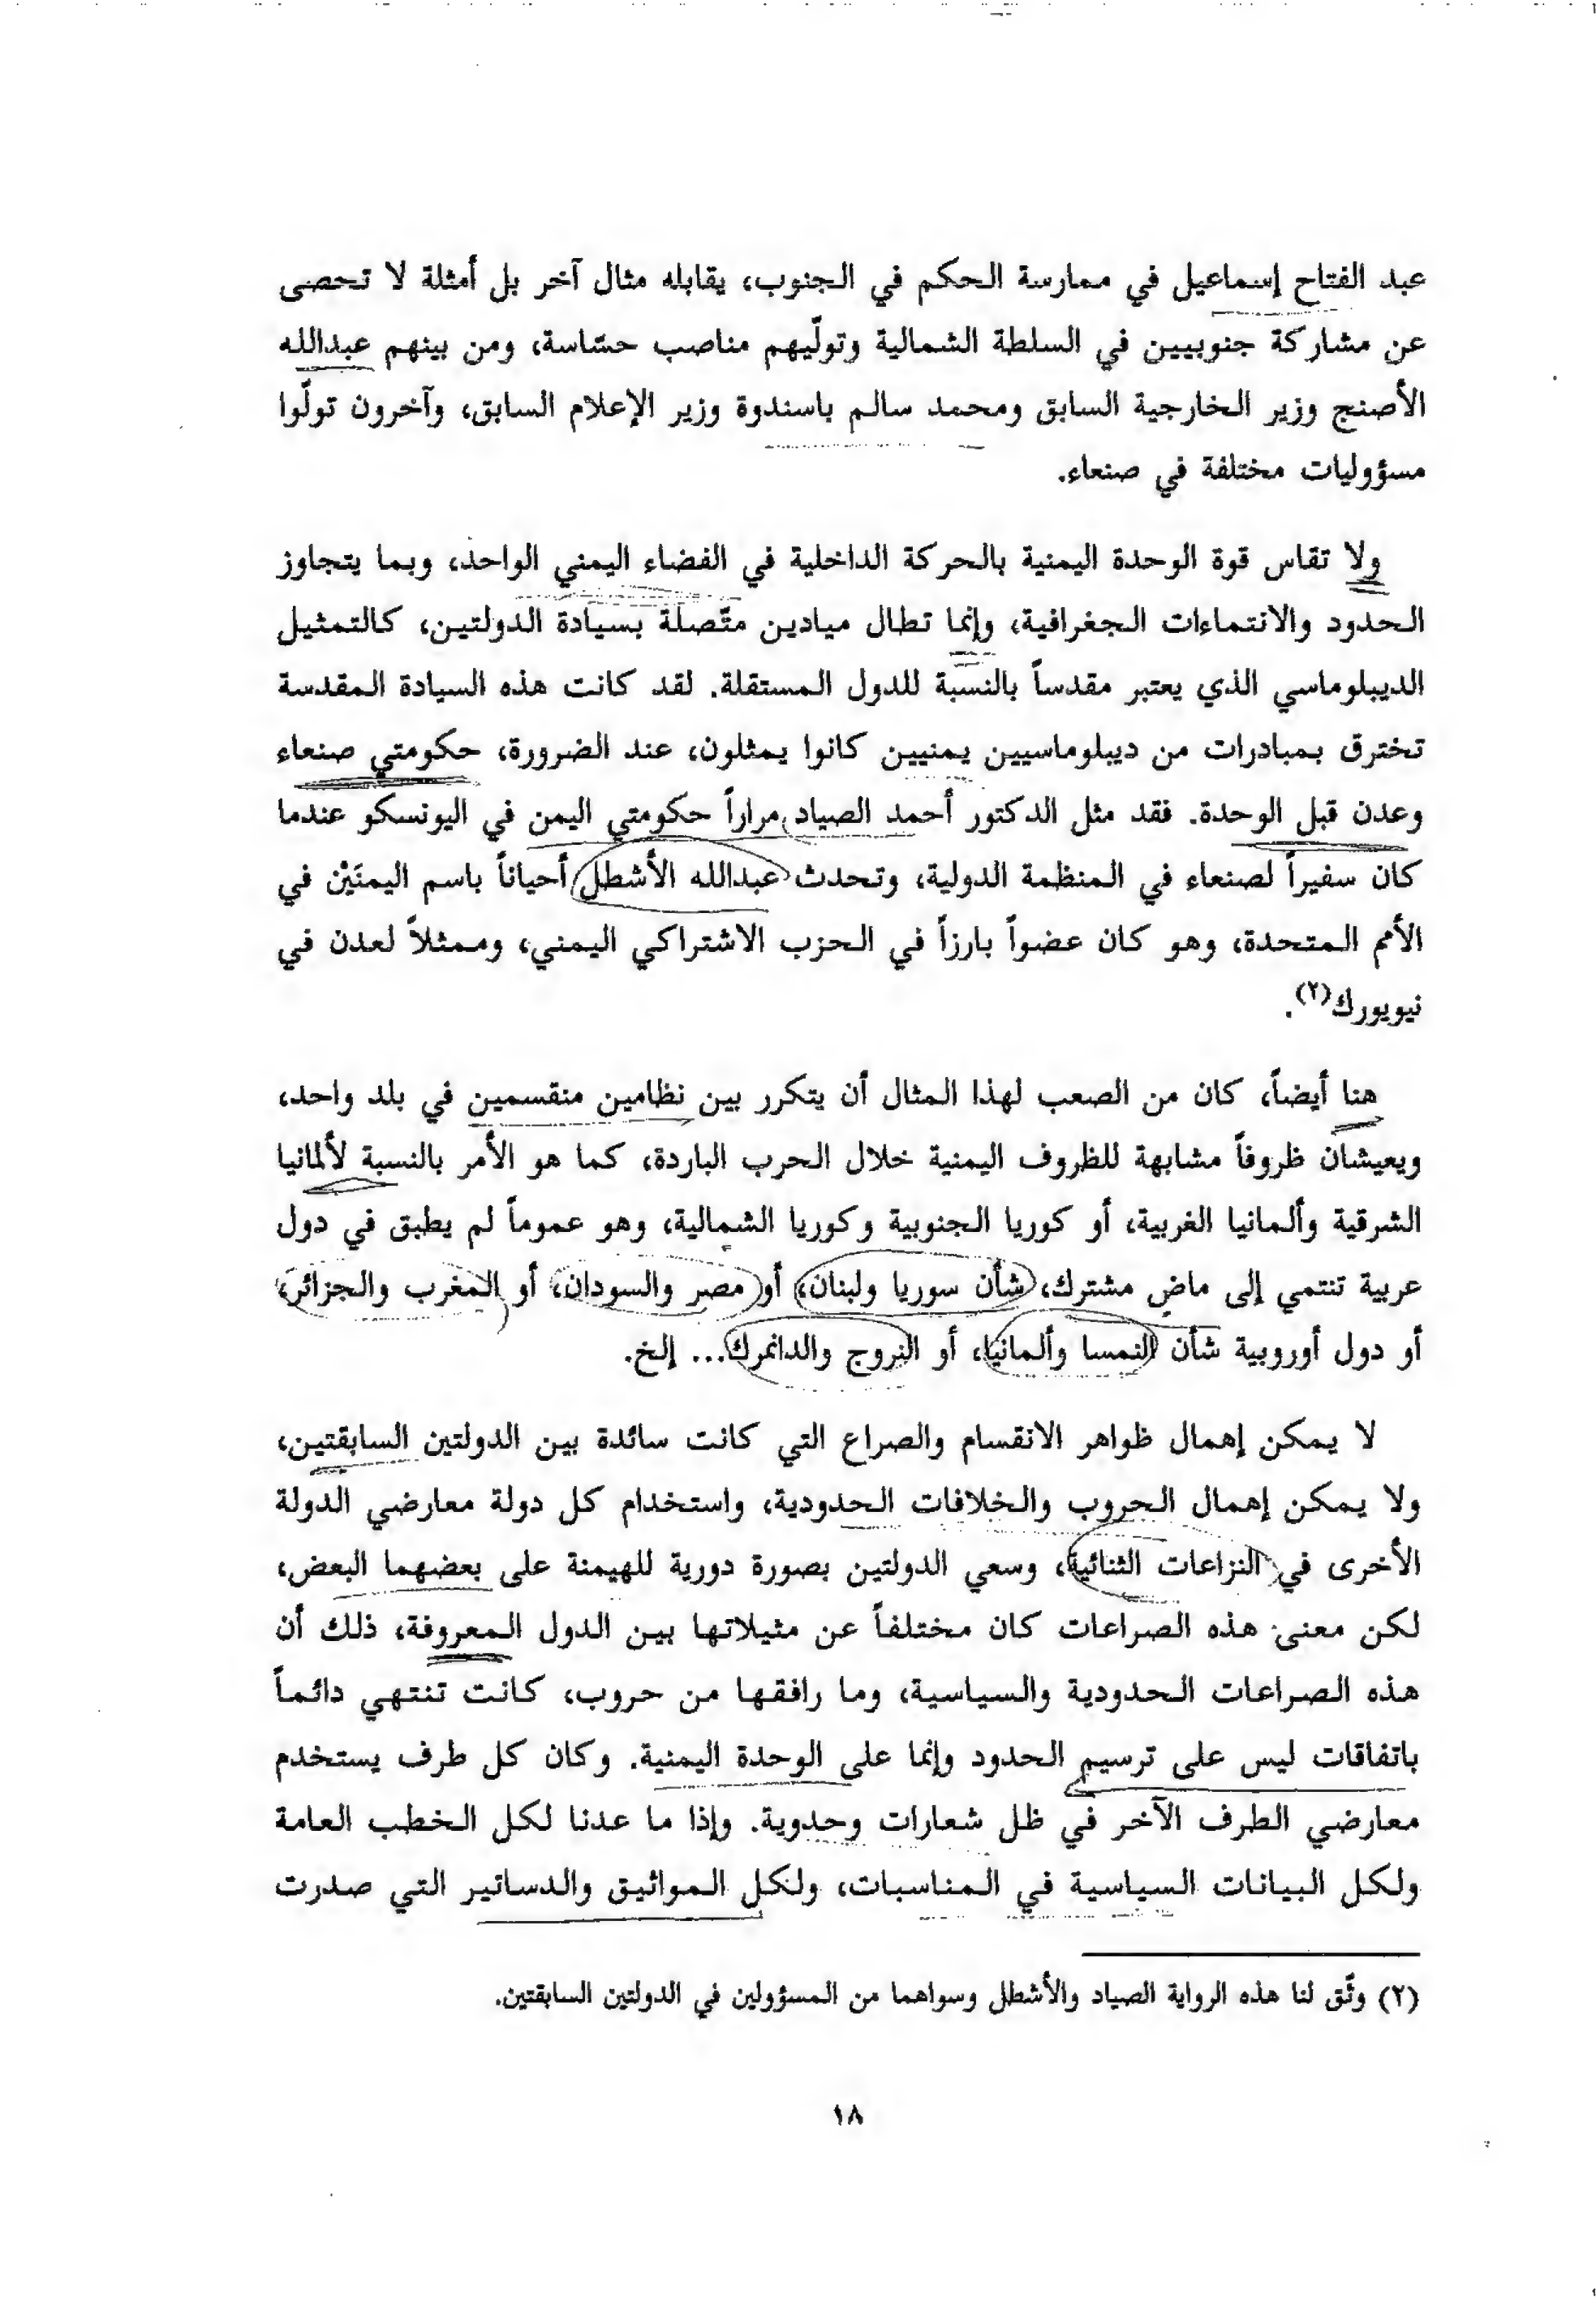 عبد الفتاح إسماعيل في ممارسة الحكم في الجنوب، يقابله مثال آخر بل أمثلة لا تحصى
عن مشاركة جنوبيين في السلطة الشمالية وتولّيهم مناصب حسّاسة، ومن بينهم عبدالله
الأصنج وزير الخارجية السابق ومحمد سالم باسندوة وزير الإعلام السابق، وآخرون تولّوا
مسؤوليات مختلفة في صنعاء.
ولا تقاس قوة الوحدة اليمنية بالحركة الداخلية في الفضاء اليمني الواحد، وبما يتجاوز
الحدود والانتماءات الجغرافية، وإنما تطال ميادين متّصلة بسيادة الدولتين، كالتمثيل
الديبلوماسي الذي يعتبر مقدساً بالنسبة للدول المستقلة. لقد كانت هذه السيادة المقدسة
تخترق بمبادرات من ديبلوماسيين يمنيين كانوا يمثلون، عند الضرورة، حكومتي صنعاء
وعدن قبل الوحدة. فقد مثل الدكتور أحمد الصياد مراراً حكومتي اليمن في اليونسكو عندما
كان سفيراً لصنعاء في المنظمة الدولية، وتحدث عبدالله الأشطل أحياناً باسم اليمنَيْن في
الأمم المتحدة، وهو كان عضواً بارزاً في الحزب الاشتراكي اليمني، وممثلاً لعدن في
نيويورك(٢).
هنا أيضاً، كان من الصعب لهذا المثال أن يتكرر بين نظامين منقسمين في بلد واحد،
ويعيشان ظروفاً مشابهة للظروف اليمنية خلال الحرب الباردة، كما هو الأمر بالنسبة لألمانيا
الشرقية وألمانيا الغربية، أو كوريا الجنوبية وكوريا الشمالية، وهو عموماً لم يطبق في دول
عربية تنتمي إلى ماضٍ مشترك، شأن سوريا ولبنان، أو مصر والسودان، أو المغرب والجزائر،
أو دول أوروبية شأن النمسا وألمانيا، أو النروج والدانمرك... إلخ.
لا يمكن إهمال ظواهر الانقسام والصراع التي كانت سائدة بين الدولتين السابقتين،
ولا يمكن إهمال الحروب والخلافات الحدودية، واستخدام كل دولة معارضي الدولة
الأخرى في النزاعات الثنائية، وسعي الدولتين بصورة دورية للهيمنة على بعضهما البعض،
لكن معنى هذه الصراعات كان مختلفاً عن مثيلاتها بين الدول المعروفة، ذلك أن
هذه الصراعات الحدودية والسياسية، وما رافقها من حروب، كانت تنتهي دائماً
باتفاقات ليس على ترسيم الحدود وإنما على الوحدة اليمنية. وكان كل طرف يستخدم
معارضي الطرف الآخر في ظل شعارات وحدوية. وإذا ما عدنا لكل الخطب العامة
ولكل البيانات السياسية في المناسبات، ولكل المواثيق والدساتير التي صدرت
(٢) وثّق لنا هذه الرواية الصياد والأشطل وسواهما من المسؤولين في الدولتين السابقتين.
١٨